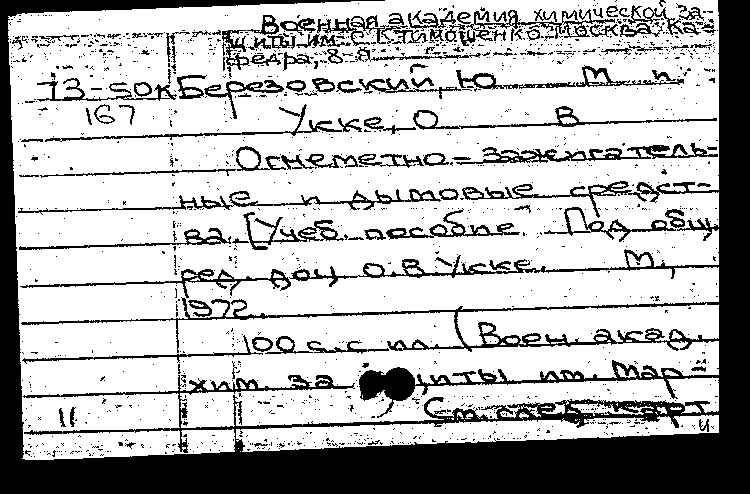 Военная академия химической за-
щиты им. С.К.Тимошенко. Москва. Ка-
федра, 8-я
73-50к Березовский, Ю М и
167 Укке, О В
Огнеметно-зажигатель-
ные и дымовые средст-
ва. [Учеб. пособие Под общ.
ред. доц О.В Укке. М.,
1972.
100 с. с ил. (Воен. акад.
хим. защиты им. Мар-
11 См. след карт